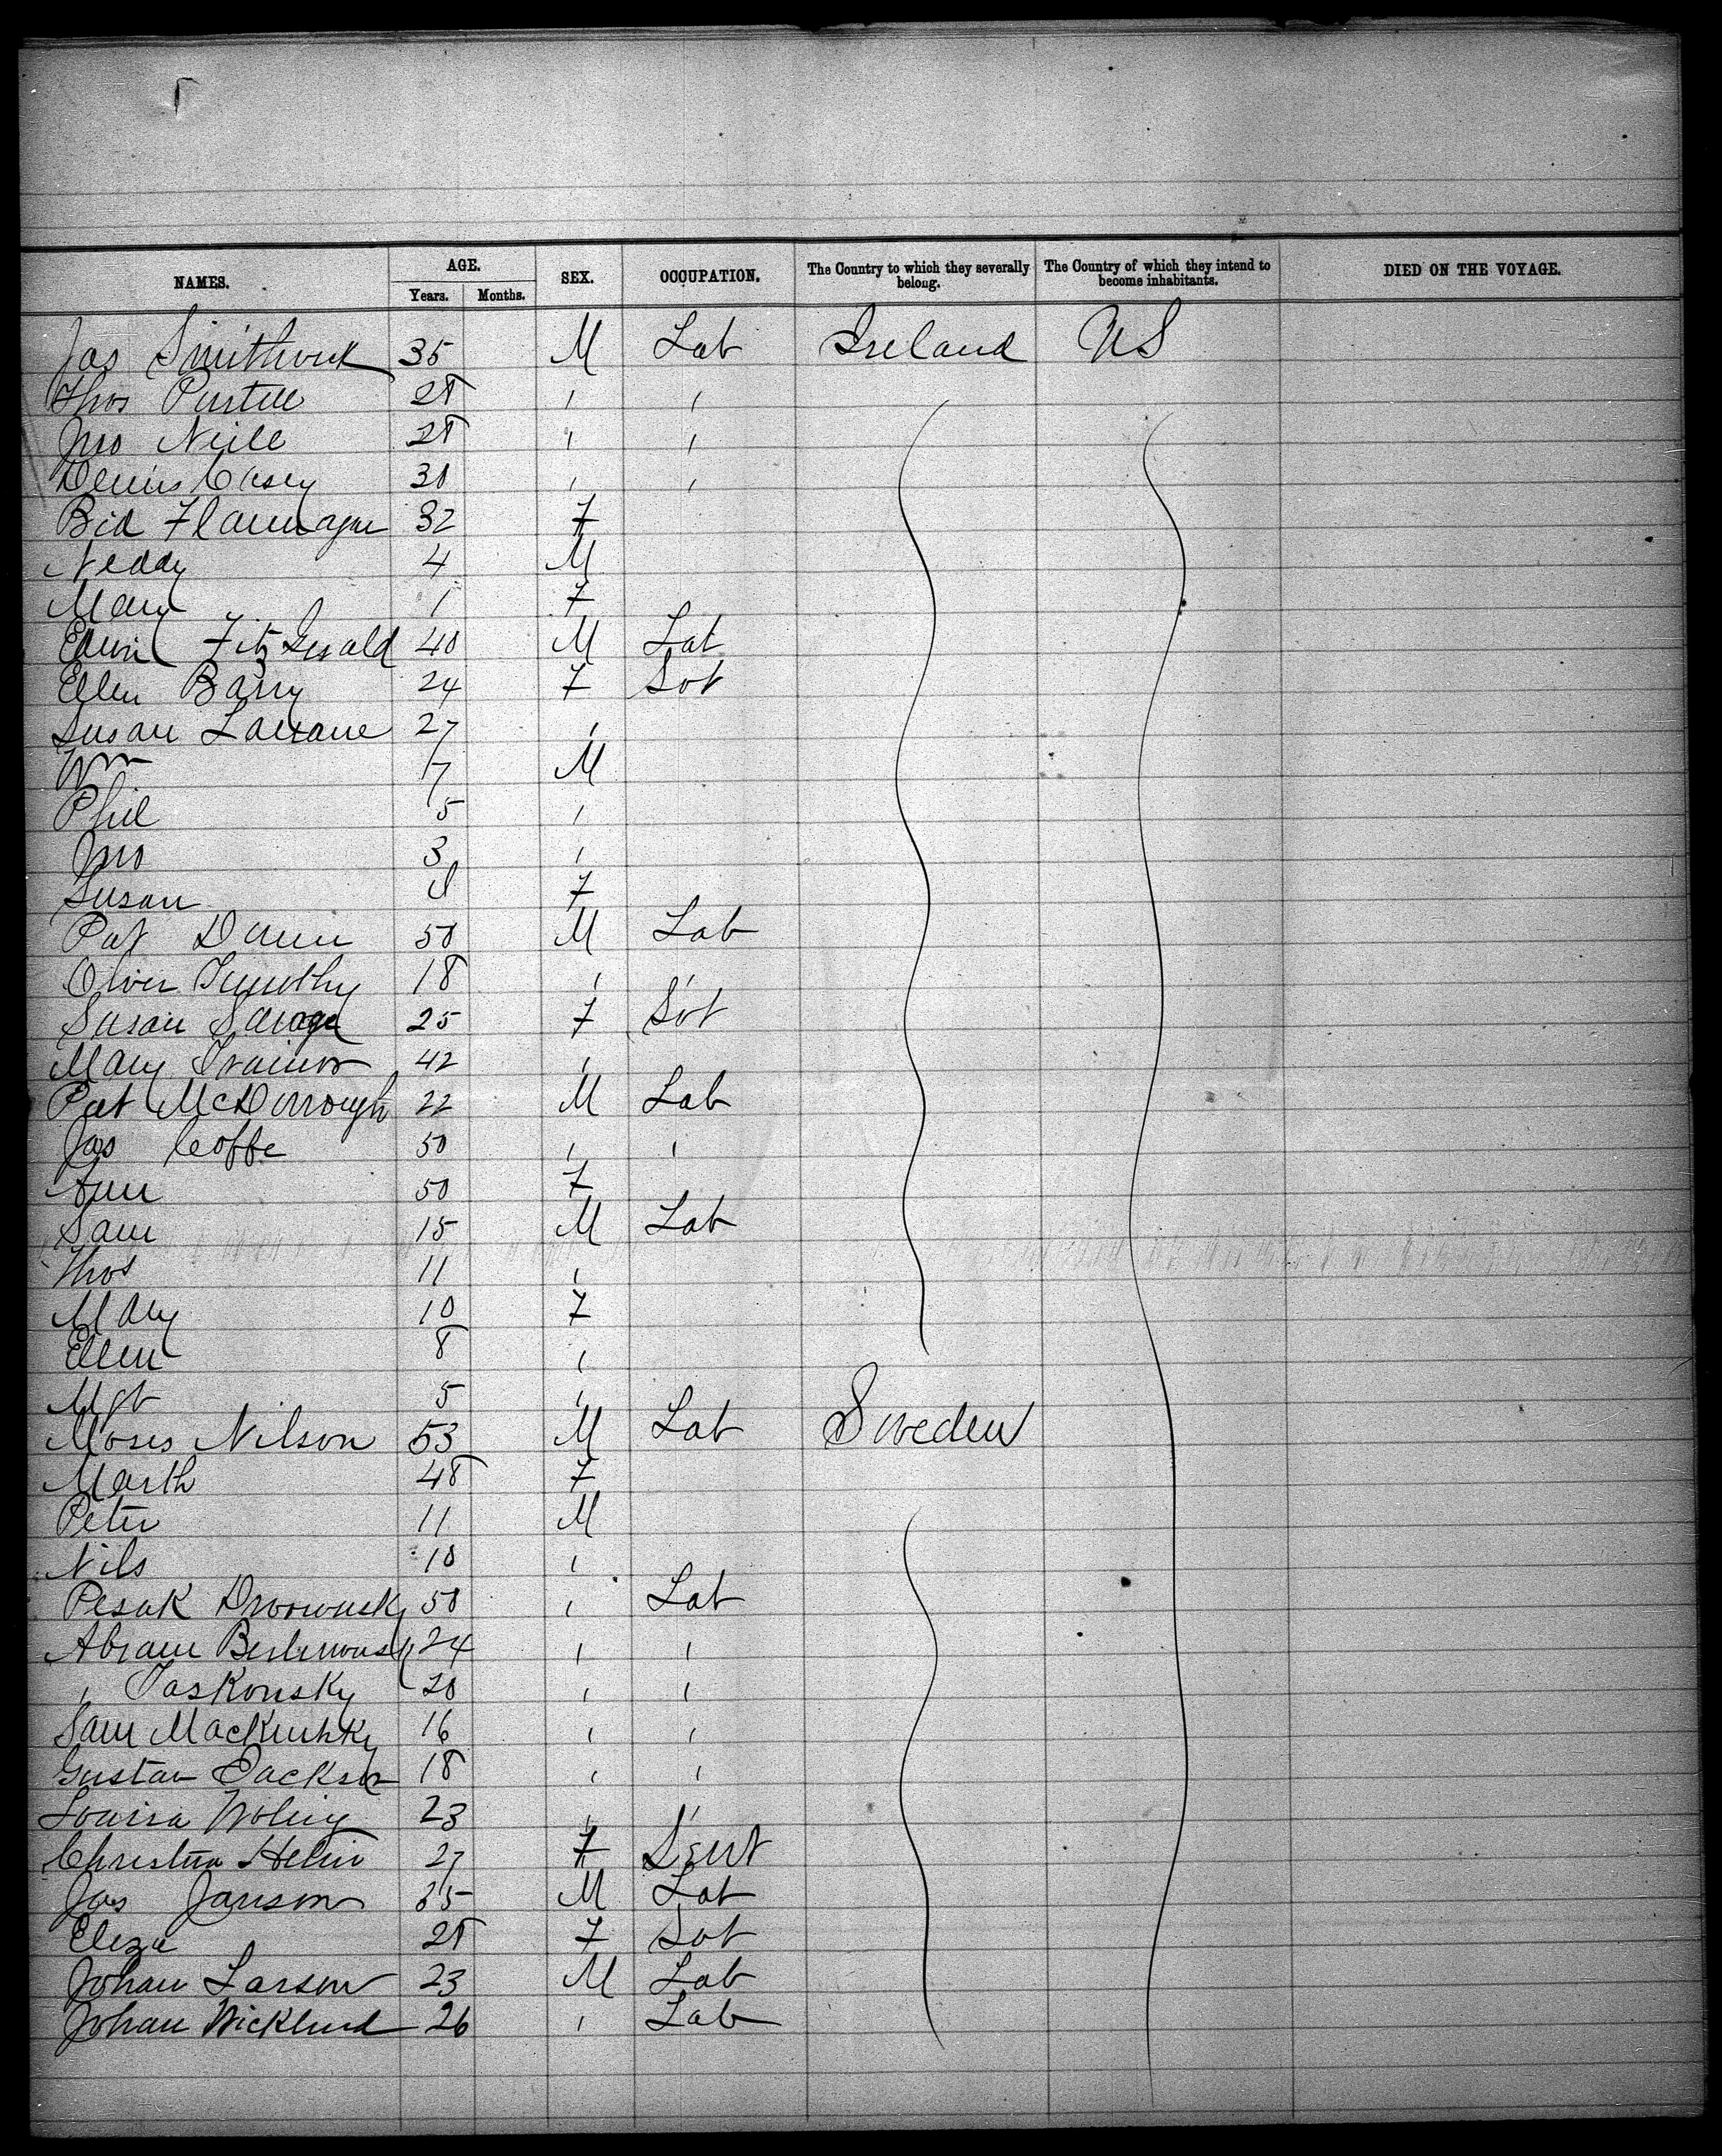 NAMES. AGE. SEX. OCCUPATION. The Country to which they severally belong. The Country of which they intend to become inhabitants. DIED ON THE VOYAGE.
Years. Months.
Jas Smithwick 35 M Lab Ireland US
Thos Purtill 28 " "
Jno Neill 28 " "
Denis Casey 30 " "
Bid Flannagan 32 F
Neddy 4 M
Mary 1 F
Edwd FitzGerald 40 M Lab
Ellen Barry 24 F Svt
Susan 27 "
Wm 7 M
Phil 5 "
Jno 3 "
Susan F
Pat Dunn 50 M Lab
Oliver Timothy 18 " "
Susan Savage 25 F Svt
Mary Trainor 42 "
Pat McDorrough 22 M Lab
Jas Coffe 50 " "
Ann 50 F
Sam 15 M Lab
Thos 11 "
Mary 10 F
Ellen 8 "
Mgt 5 "
Moses Nilson 53 M Lab Sweden
Marth 48 F
Peter 11 M
Nils 10 "
Pesak 50 " Lab
Abram 24 " "
" Taskonsky 20 " "
Sam 16 " "
Gustav Jackson 18 " "
Louisa 23 " "
Christina Helin 27 F Servt
Jas Janson 35 M Lab
Eliza 28 F Svt
Johan Larson 23 M Lab
Johan Wicklund 26 " Lab